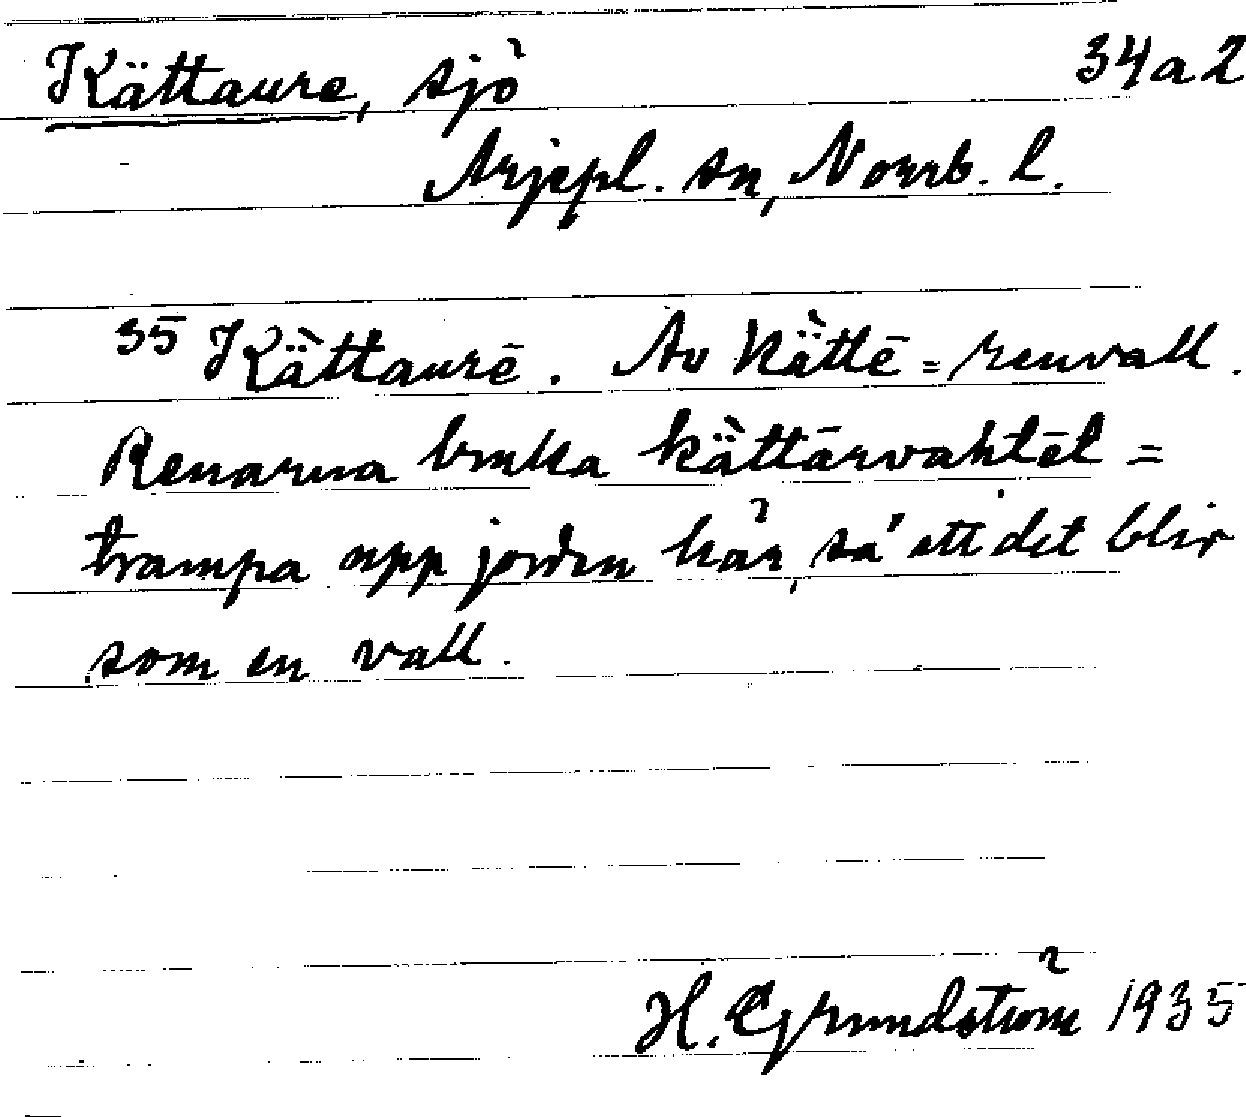 Kättaure, sjö 34a2
Arjepl. sn, Norrb. l.
35 Kä̀ttaurē. Av kä̀ttē = renvall.
Renarna bruka kä̀ttārvahtēt =
trampa upp jorden här, så att det blir
som en vall.
H. Grundström 1935